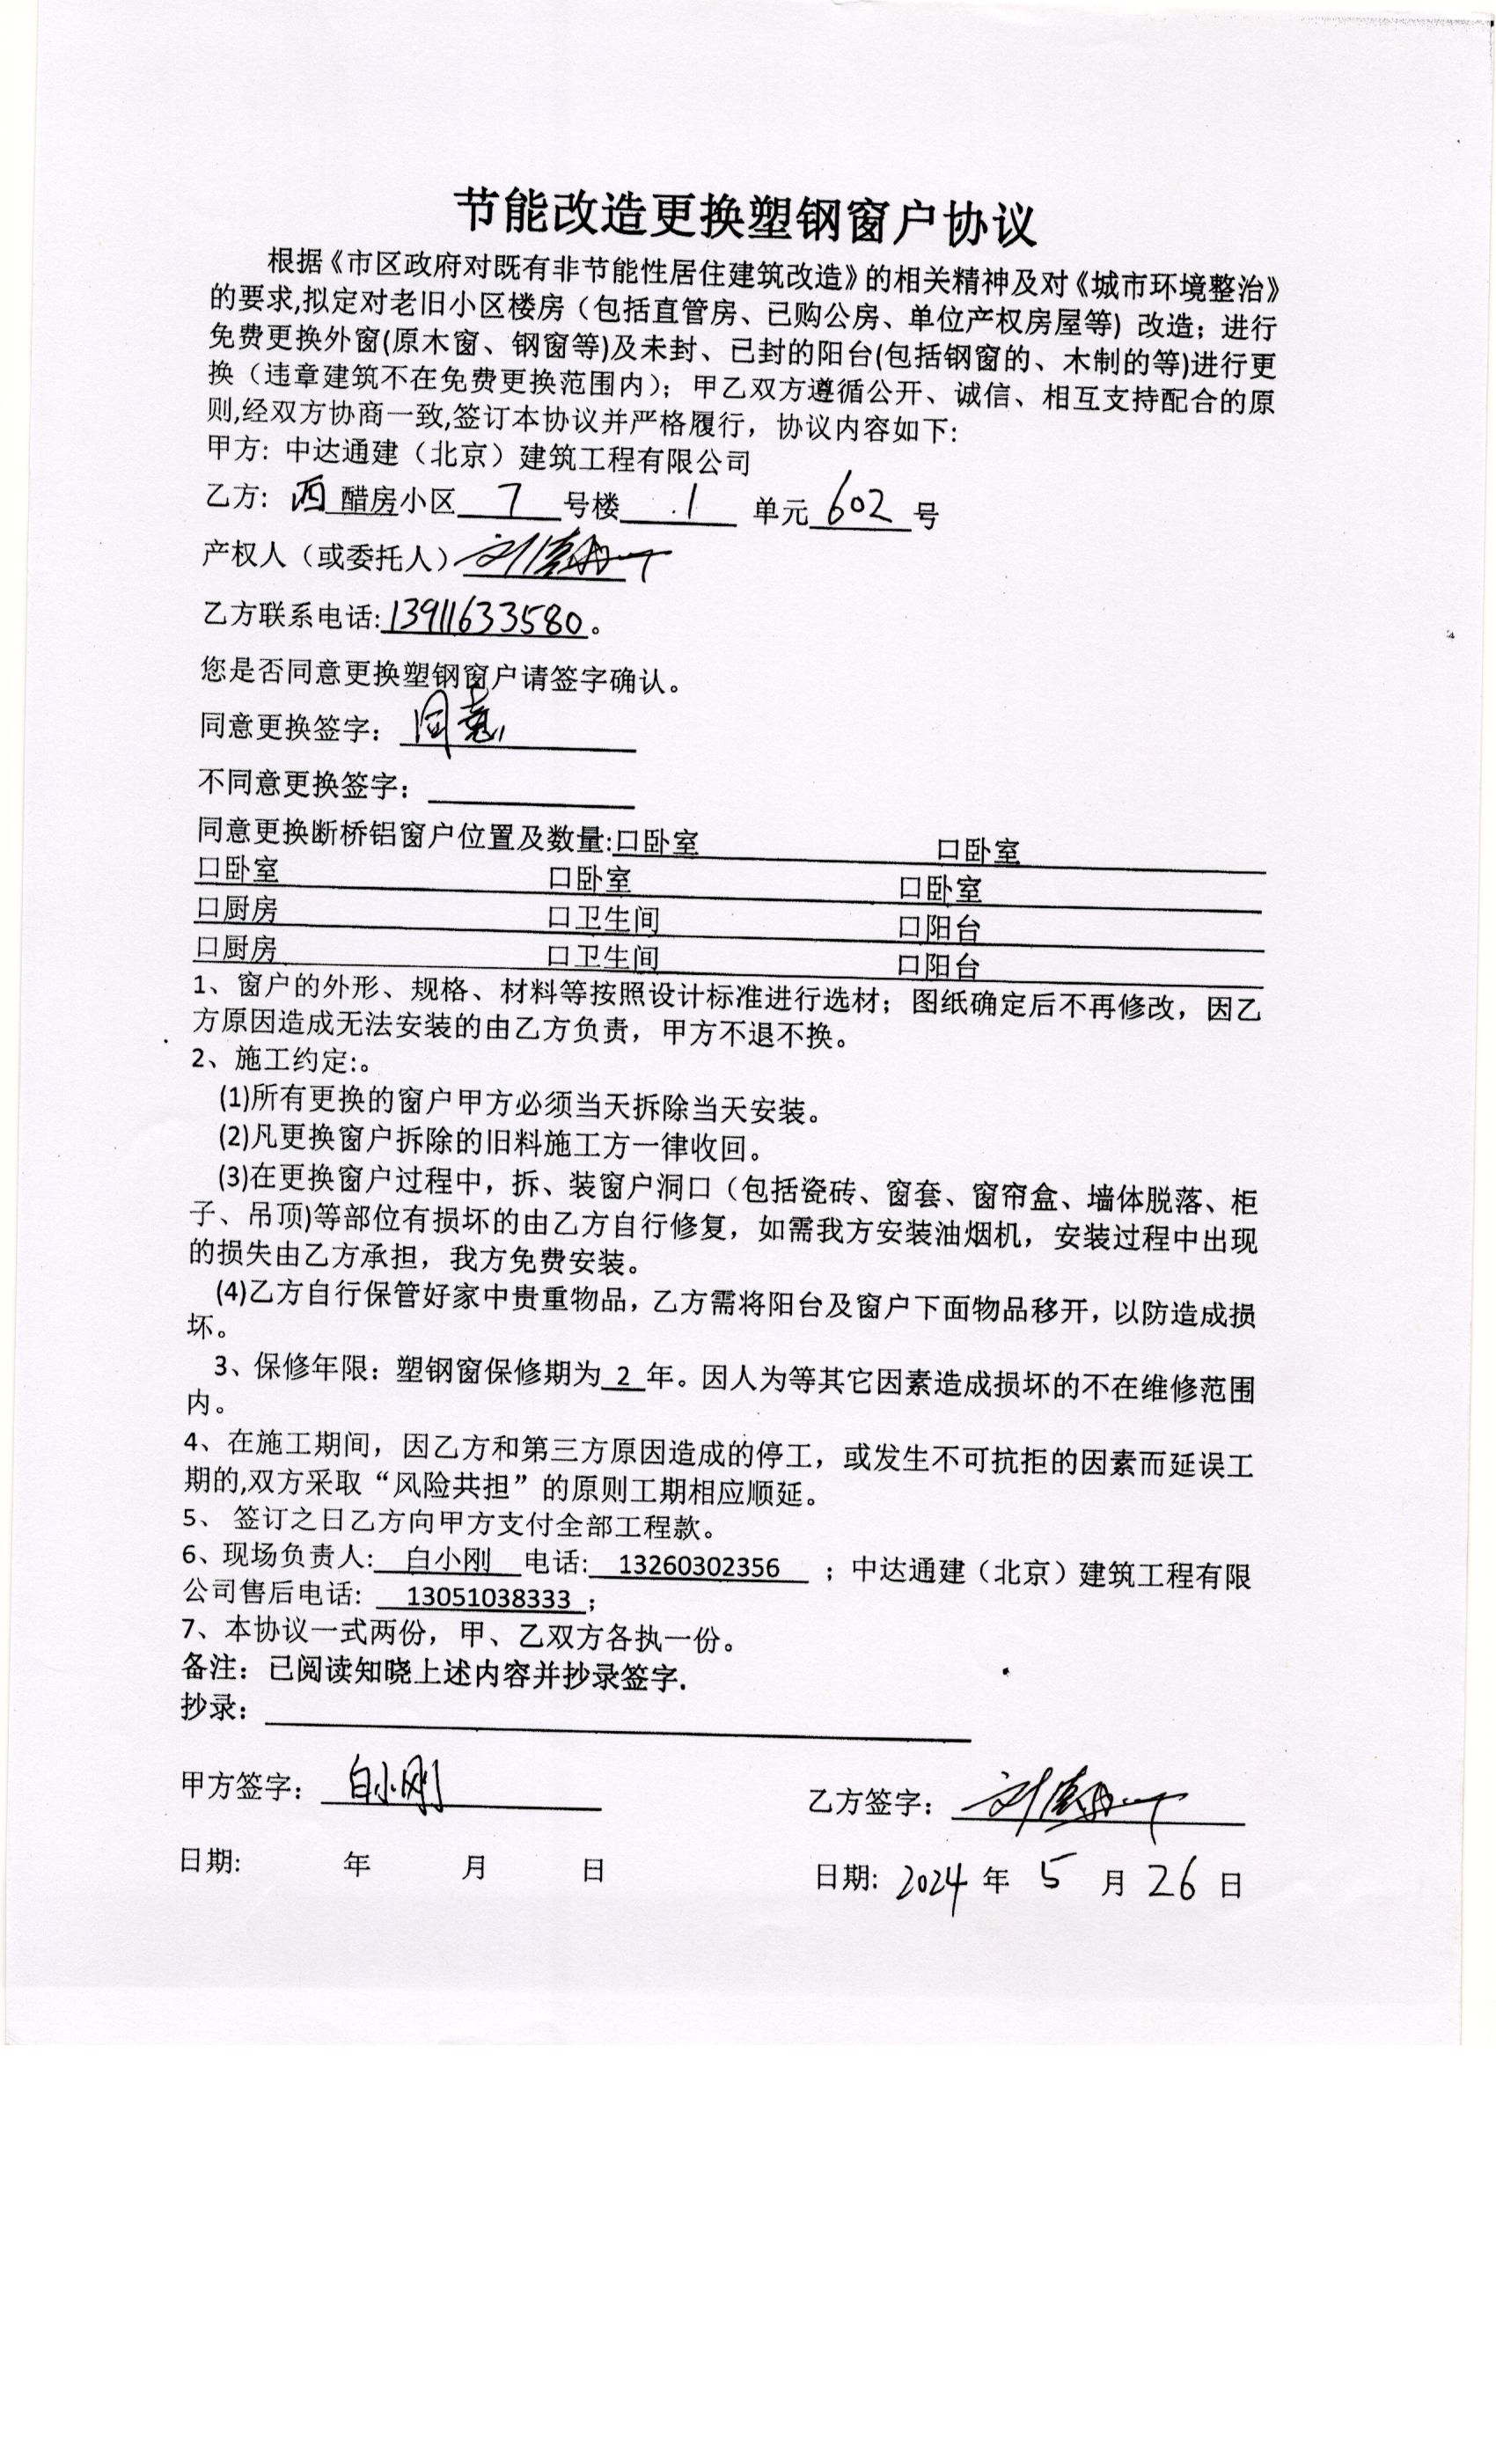 节能改造更换塑钢窗户协议
根据《市区政府对既有非节能性居住建筑改造》的相关精神及对《城市环境整治》
的要求,拟定对老旧小区楼房（包括直管房、已购公房、单位产权房屋等) 改造；进行
免费更换外窗(原木窗、钢窗等)及未封、已封的阳台(包括钢窗的、木制的等)进行更
换（违章建筑不在免费更换范围内）；甲乙双方遵循公开、诚信、相互支持配合的原
则,经双方协商一致,签订本协议并严格履行，协议内容如下:
甲方: 中达通建（北京）建筑工程有限公司
乙方: 西 醋房小区 7 号楼 1 单元 602 号
产权人（或委托人）刘
乙方联系电话:13911633580。
您是否同意更换塑钢窗户请签字确认。
同意更换签字： 同意
不同意更换签字：
同意更换断桥铝窗户位置及数量:口卧室 口卧室
口卧室 口卧室 口卧室
口厨房 口卫生间 口阳台
口厨房 口卫生间 口阳台
1、窗户的外形、规格、材料等按照设计标准进行选材；图纸确定后不再修改，因乙
方原因造成无法安装的由乙方负责，甲方不退不换。
2、施工约定:。
(1)所有更换的窗户甲方必须当天拆除当天安装。
(2)凡更换窗户拆除的旧料施工方一律收回。
(3)在更换窗户过程中，拆、装窗户洞口（包括瓷砖、窗套、窗帘盒、墙体脱落、柜
子、吊顶)等部位有损坏的由乙方自行修复，如需我方安装油烟机，安装过程中出现
的损失由乙方承担，我方免费安装。
(4)乙方自行保管好家中贵重物品，乙方需将阳台及窗户下面物品移开，以防造成损
坏。
3、保修年限：塑钢窗保修期为 2 年。因人为等其它因素造成损坏的不在维修范围
内。
4、在施工期间，因乙方和第三方原因造成的停工，或发生不可抗拒的因素而延误工
期的,双方采取“风险共担”的原则工期相应顺延。
5、 签订之日乙方向甲方支付全部工程款。
6、现场负责人: 白小刚 电话: 13260302356 ；中达通建（北京）建筑工程有限
公司售后电话: 13051038333 ;
7、本协议一式两份，甲、乙双方各执一份。
备注：已阅读知晓上述内容并抄录签字.
抄录：
甲方签字： 白小刚 乙方签字： 刘
日期: 年 月 日 日期: 2024 年 5 月 26 日